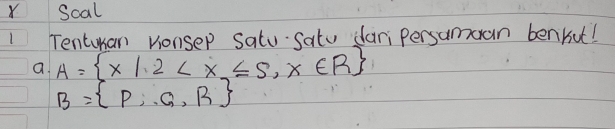 γ Soal
1 Tentukan konsep satu-satu dari persamaan berikut!
a. A = {x | . 2 < x ≤ 5, x ∈ R}
B = { P, . Q, R }